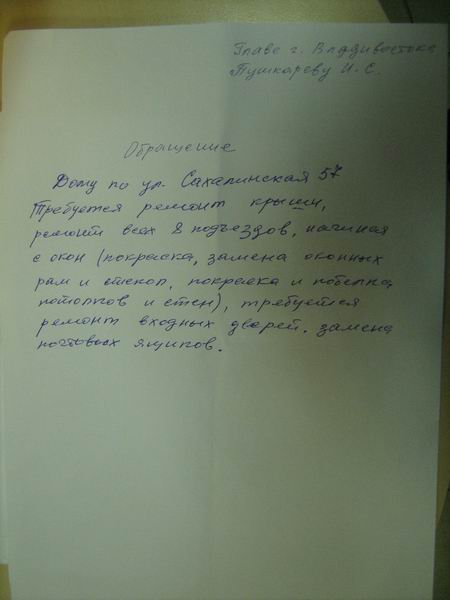 Главе г. Владивостока
Пушкареву И. С.
Обращение
Дому по ул. Сахалинская 57
требуется ремонт крыши,
ремонт всех 8 подъездов, начиная
с окон (покраска, замена оконных
рам и стекол, покраска и побелка
потолков и стен), требуется
ремонт входных дверей. замена
почтовых ящиков.